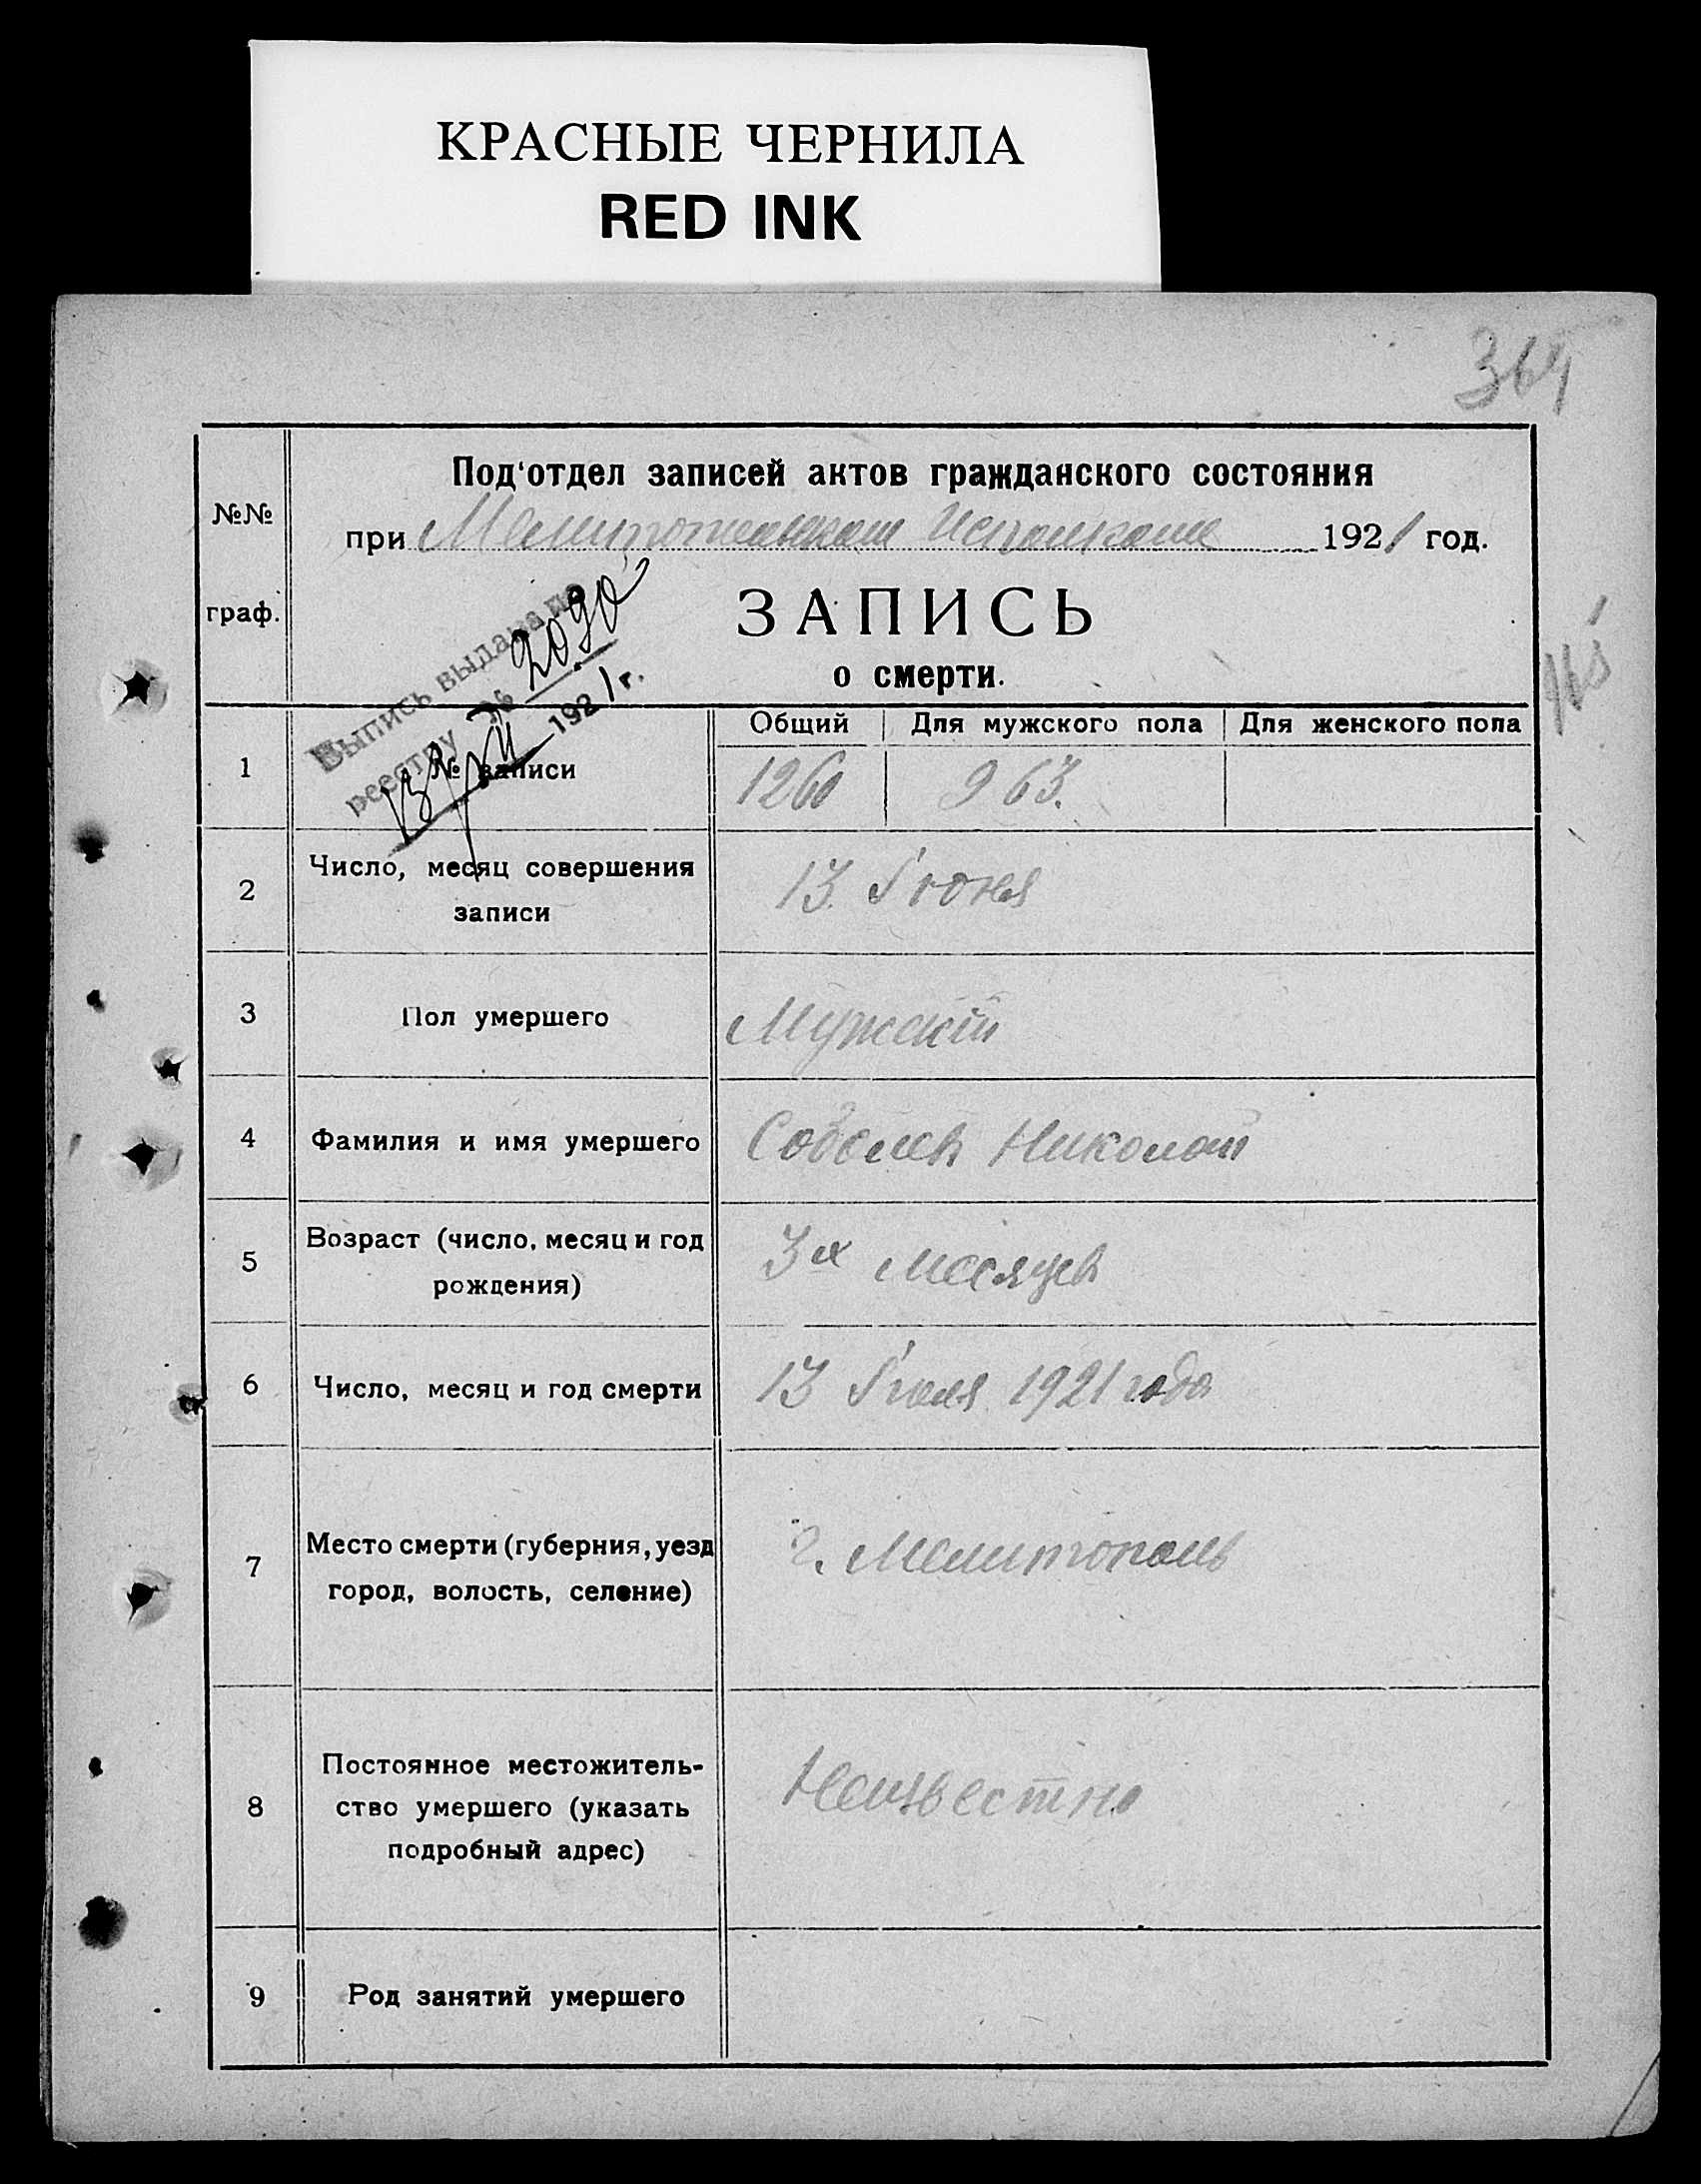 КРАСНЫЕ ЧЕРНИЛА
RED INK
364
Под'отдел записей актов гражданского состояния
№№
при Мелитопольском Исполкоме 1921 год.
граф.
ЗАПИСЬ
о смерти.
Выпись выдана по
реестру № 2090
1921г.
Общий Для мужского пола Для женского пола
1 № записи 1260 963.
2 Число, месяц совершения
записи
13 Іюня
3 Пол умершего Мужскій
4 Фамилия и имя умершего Николай
5 Возраст (число, месяц и год
рождения)
3х месяцев
6 Число, месяц и год смерти 13 Іюля 1921 года
7 Место смерти (губерния, уезд
город, волость, селение)
г. Мелитополь
8 Постоянное местожитель-
ство умершего (указать
подробный адрес)
Неизвестно
9 Род занятий умершего